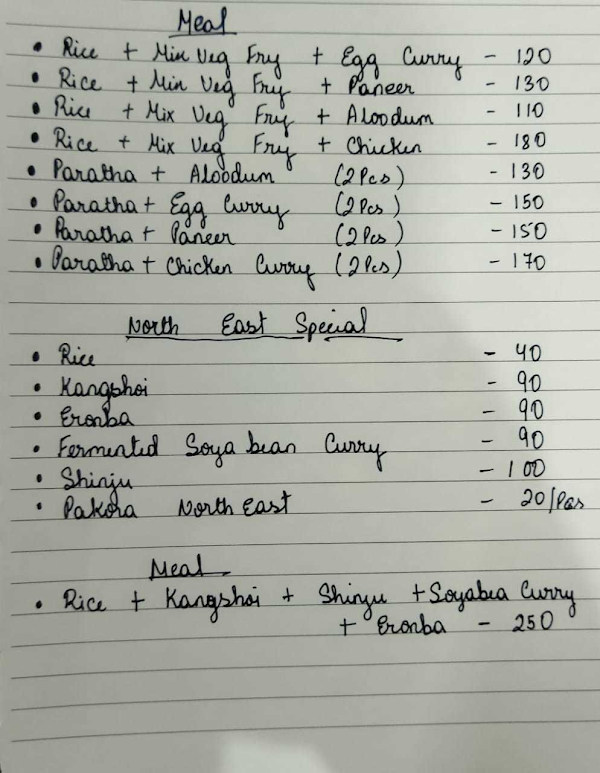 Meal
• Rice + Min Veg Fry + Egg Curry - 120
• Rice + Min Veg Fry + Paneer - 130
• Rice + Mix Veg Fry + Aloodum - 110
• Rice + Mix Veg Fry + Chicken - 180
• Paratha + Aloodum (2Pcs) - 130
• Paratha + Egg Curry (2Pcs) - 150
• Paratha + Paneer (2Pcs) - 150
• Paratha + Chicken Curry (2Pcs) - 170
North East Special
• Rice - 40
• Kangshoi - 90
• Eronba - 90
• Fermented Soya bean Curry - 90
• Shinju - 100
• Pakora North East - 20/Pcs
Meal
• Rice + Kangshoi + Shinju + Soyabea Curry
+ Eronba - 250